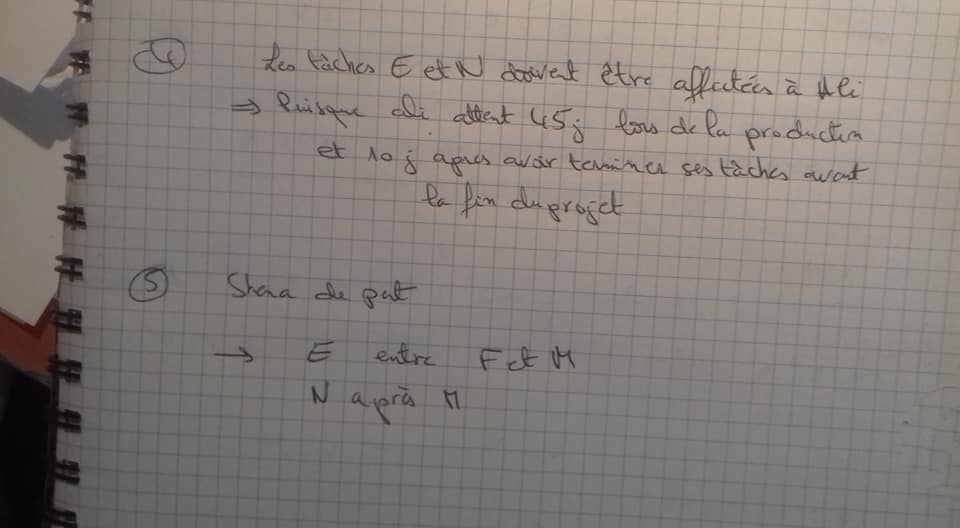 ④ Les tâches E et N doivent être affectées à Ali
⇒ Puisque Ali attent 45j lors de la production
et 10 j apres avoir terminer ses tâches avant
la fin du projet
⑤ de
→ E entre F et M
N après M